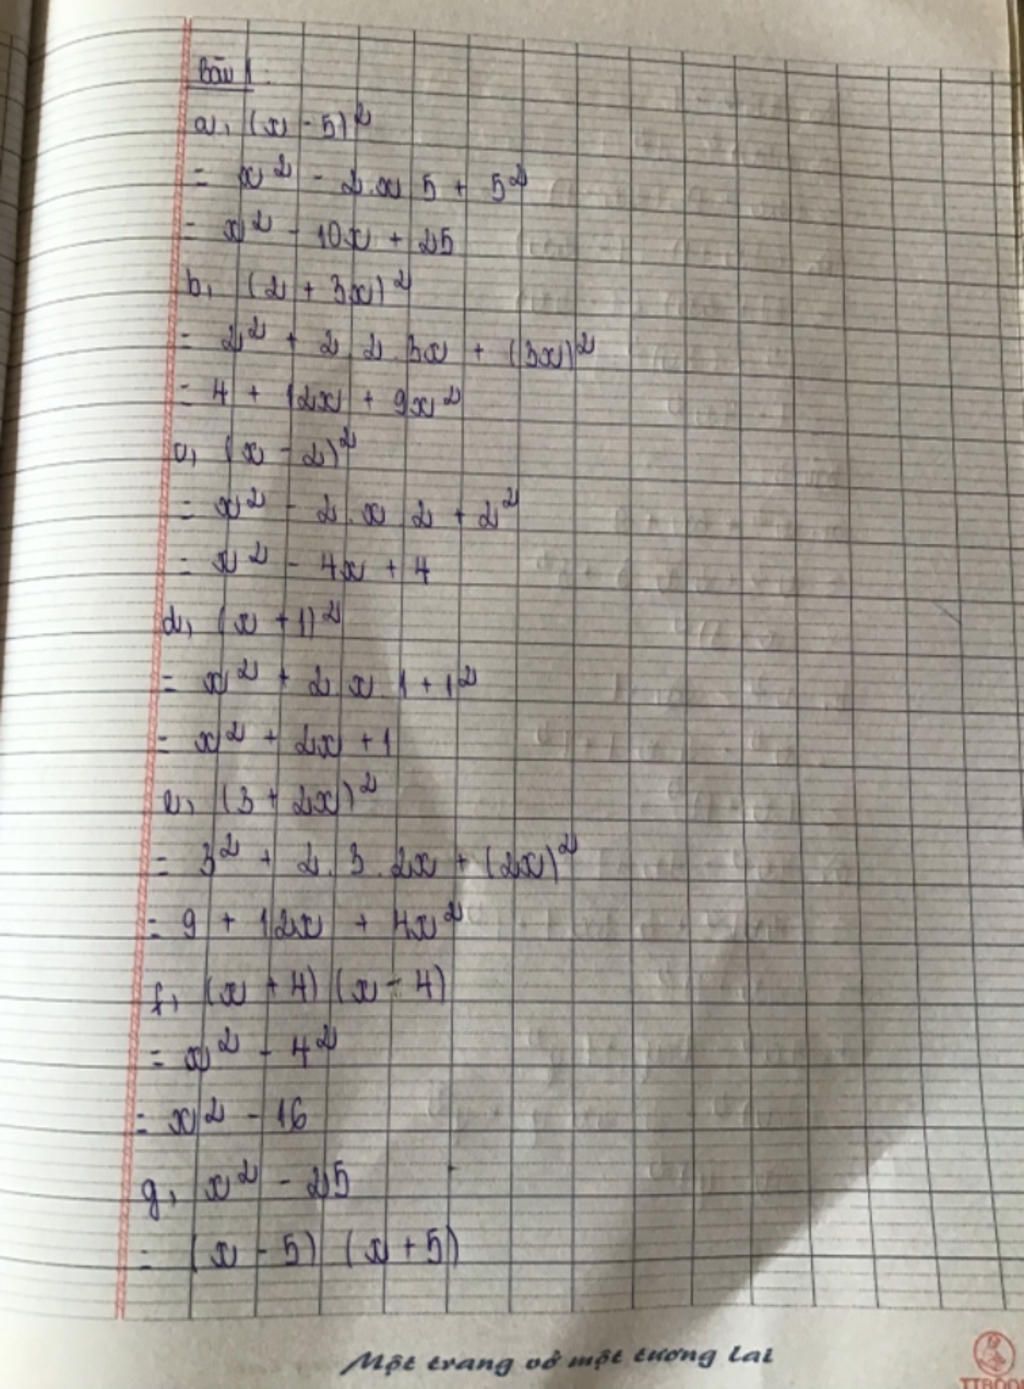 Bài 1
a, (x - 5)²
= x² - 2.x 5 + 5²
= x² - 10x + 25
b, (2 + 3x)²
= 2² + 2 2.3x + (3x)²
= 4 + 12x + 9x²
c, (x - 2)²
= x² - 2.x 2 + 2²
= x² - 4x + 4
d, (x + 1)²
= x² + 2 x 1 + 1²
= x² + 2x + 1
e, (3 + 2x)²
= 3² + 2.3.2x + (2x)²
= 9 + 12x + 4x²
f, (x + 4) (x - 4)
= x² - 4²
= x² - 16
g, x² - 25
= (x - 5) (x + 5)
Một trang vở một tương lai
TTBOO